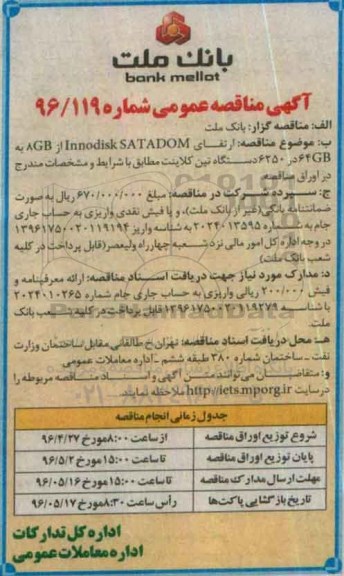 بانک ملت
bank mellat
آگهی مناقصه عمومی شماره ۹۶/۱۱۹
الف: مناقصه گزار: بانک ملت
ب: موضوع مناقصه: ارتقای Innodisk SATADOM از ۸GB به
۶۴GB در ۶۲۵۰ دستگاه تین کلاینت مطابق با شرایط و مشخصات مندرج
در اوراق مناقصه
ج: سپرده شرکت در مناقصه: مبلغ ۶۷۰/۰۰۰/۰۰۰ ریال به صورت
ضمانتنامه بانکی (غیر از بانک ملت)، و یا فیش نقدی واریزی به حساب جاری
جام به شماره ۲۰۲۴۰۱۳۵۹۵ به شناسه واریز ۱۳۹۶۱۷۵۰۰۲۰۱۱۹۱۹۴
در وجه اداره کل امور مالی نزد شعبه چهارراه ولیعصر (قابل پرداخت در کلیه
شعب بانک ملت)
د: مدارک مورد نیاز جهت دریافت اسناد مناقصه: ارائه معرفینامه و
فیش ۲۰۰/۰۰۰ ریالی واریزی به حساب جاری جام شماره ۲۰۲۴۰۱۰۲۶۵
با شناسه ۱۳۹۶۱۷۵۰۰۲۰۱۱۹۲۷۹ قابل پرداخت در کلیه شعب بانک
ملت
هـ: محل دریافت اسناد مناقصه: تهران خ طالقانی مقابل ساختمان وزارت
نفت - ساختمان شماره ۳۸۰ طبقه ششم - اداره معاملات عمومی
و: متقاضیان می توانند متن آگهی و اسناد مناقصه مربوطه را
در سایت http://iets.mporg.ir ملاحظه نمایند.
جدول زمانی انجام مناقصه
شروع توزیع اوراق مناقصه از ساعت ۸:۰۰ مورخ ۹۶/۴/۲۷
پایان توزیع اوراق مناقصه تا ساعت ۱۵:۰۰ مورخ ۹۶/۵/۲
مهلت ارسال مدارک مناقصه تا ساعت ۱۵:۰۰ مورخ ۹۶/۰۵/۱۶
تاریخ بازگشایی پاکت‌ها رأس ساعت ۸:۳۰ مورخ ۹۶/۰۵/۱۷
اداره کل تدارکات
اداره معاملات عمومی